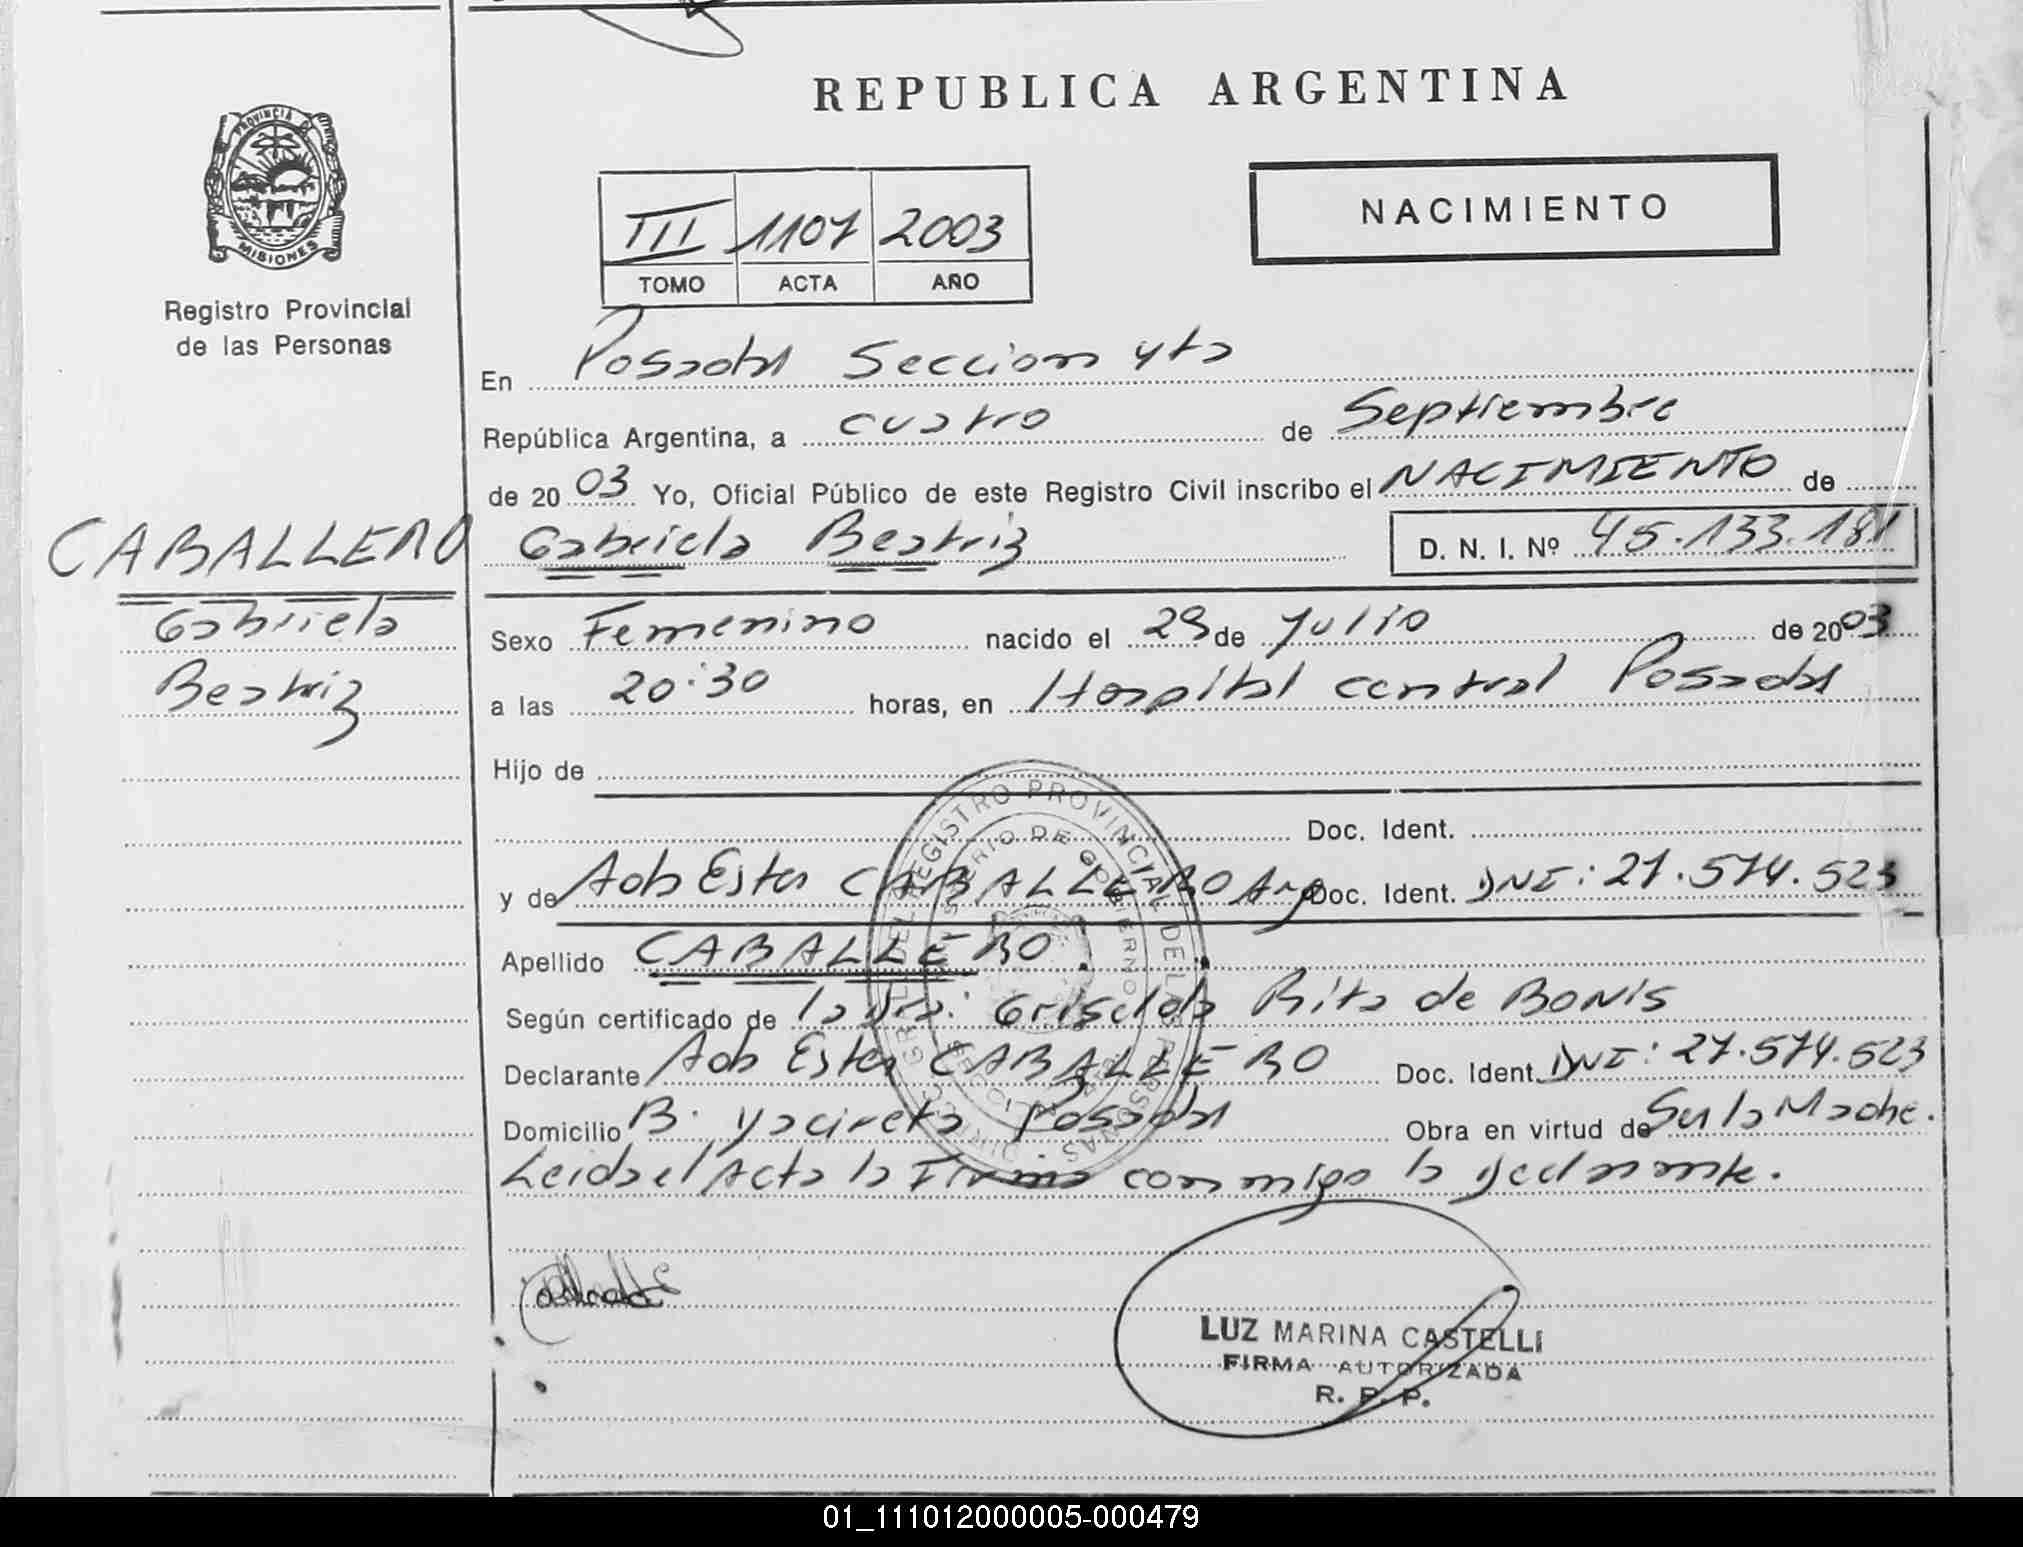 REPUBLICA ARGENTINA
PROVINCIA DE
MISIONES
Registro Provincial
de las Personas
NACIMIENTO
III 1107 2003
TOMO ACTA AÑO
En Posadas Seccion 4ta
República Argentina, a cuatro de Septiembre
de 2003 Yo, Oficial Público de este Registro Civil inscribo el NACIMIENTO de
Gabriela Beatriz D. N. I. Nº 45.133.181
CABALLERO
Gabriela
Beatriz
Sexo Femenino nacido el 29 de Julio de 2003
a las 20:30 horas, en Hospital central Posadas
Hijo de
Doc. Ident.
y de Ada Ester CABALLERO Arg Doc. Ident. DNI: 27.574.523
Apellido CABALLERO.
Según certificado de la Dra: Griselda Rita de BONIS
Declarante Ada Ester CABALLERO Doc. Ident. DNI: 27.574.523
Domicilio B. Yacireta Posadas Obra en virtud de Ser la Madre.
Leida el Acta la Firma conmigo la declarante.
REGISTRO PROVINCIAL DE LAS PERSONAS
MINISTERIO DE GOBIERNO
LUZ MARINA CASTELLI
FIRMA AUTORIZADA
R. P. P.
01_111012000005-000479